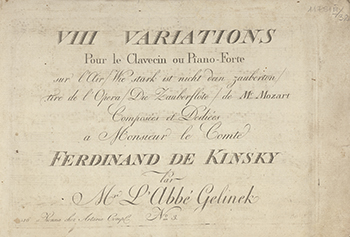 VIII VARIATIONS
Pour le Clavecin ou Piano-Forte
sur l'Air/Wie stark ist nicht dein zauberton/
tire de l'Opera/Die Zauberflöte/de Mr. Mozart
Composées et Dediées
a Monsieur le Comte
FERDINAND DE KINSKY
Par
Mr. L'Abbé Gelinek
a Vienne chez Artaria Comp. No. 5